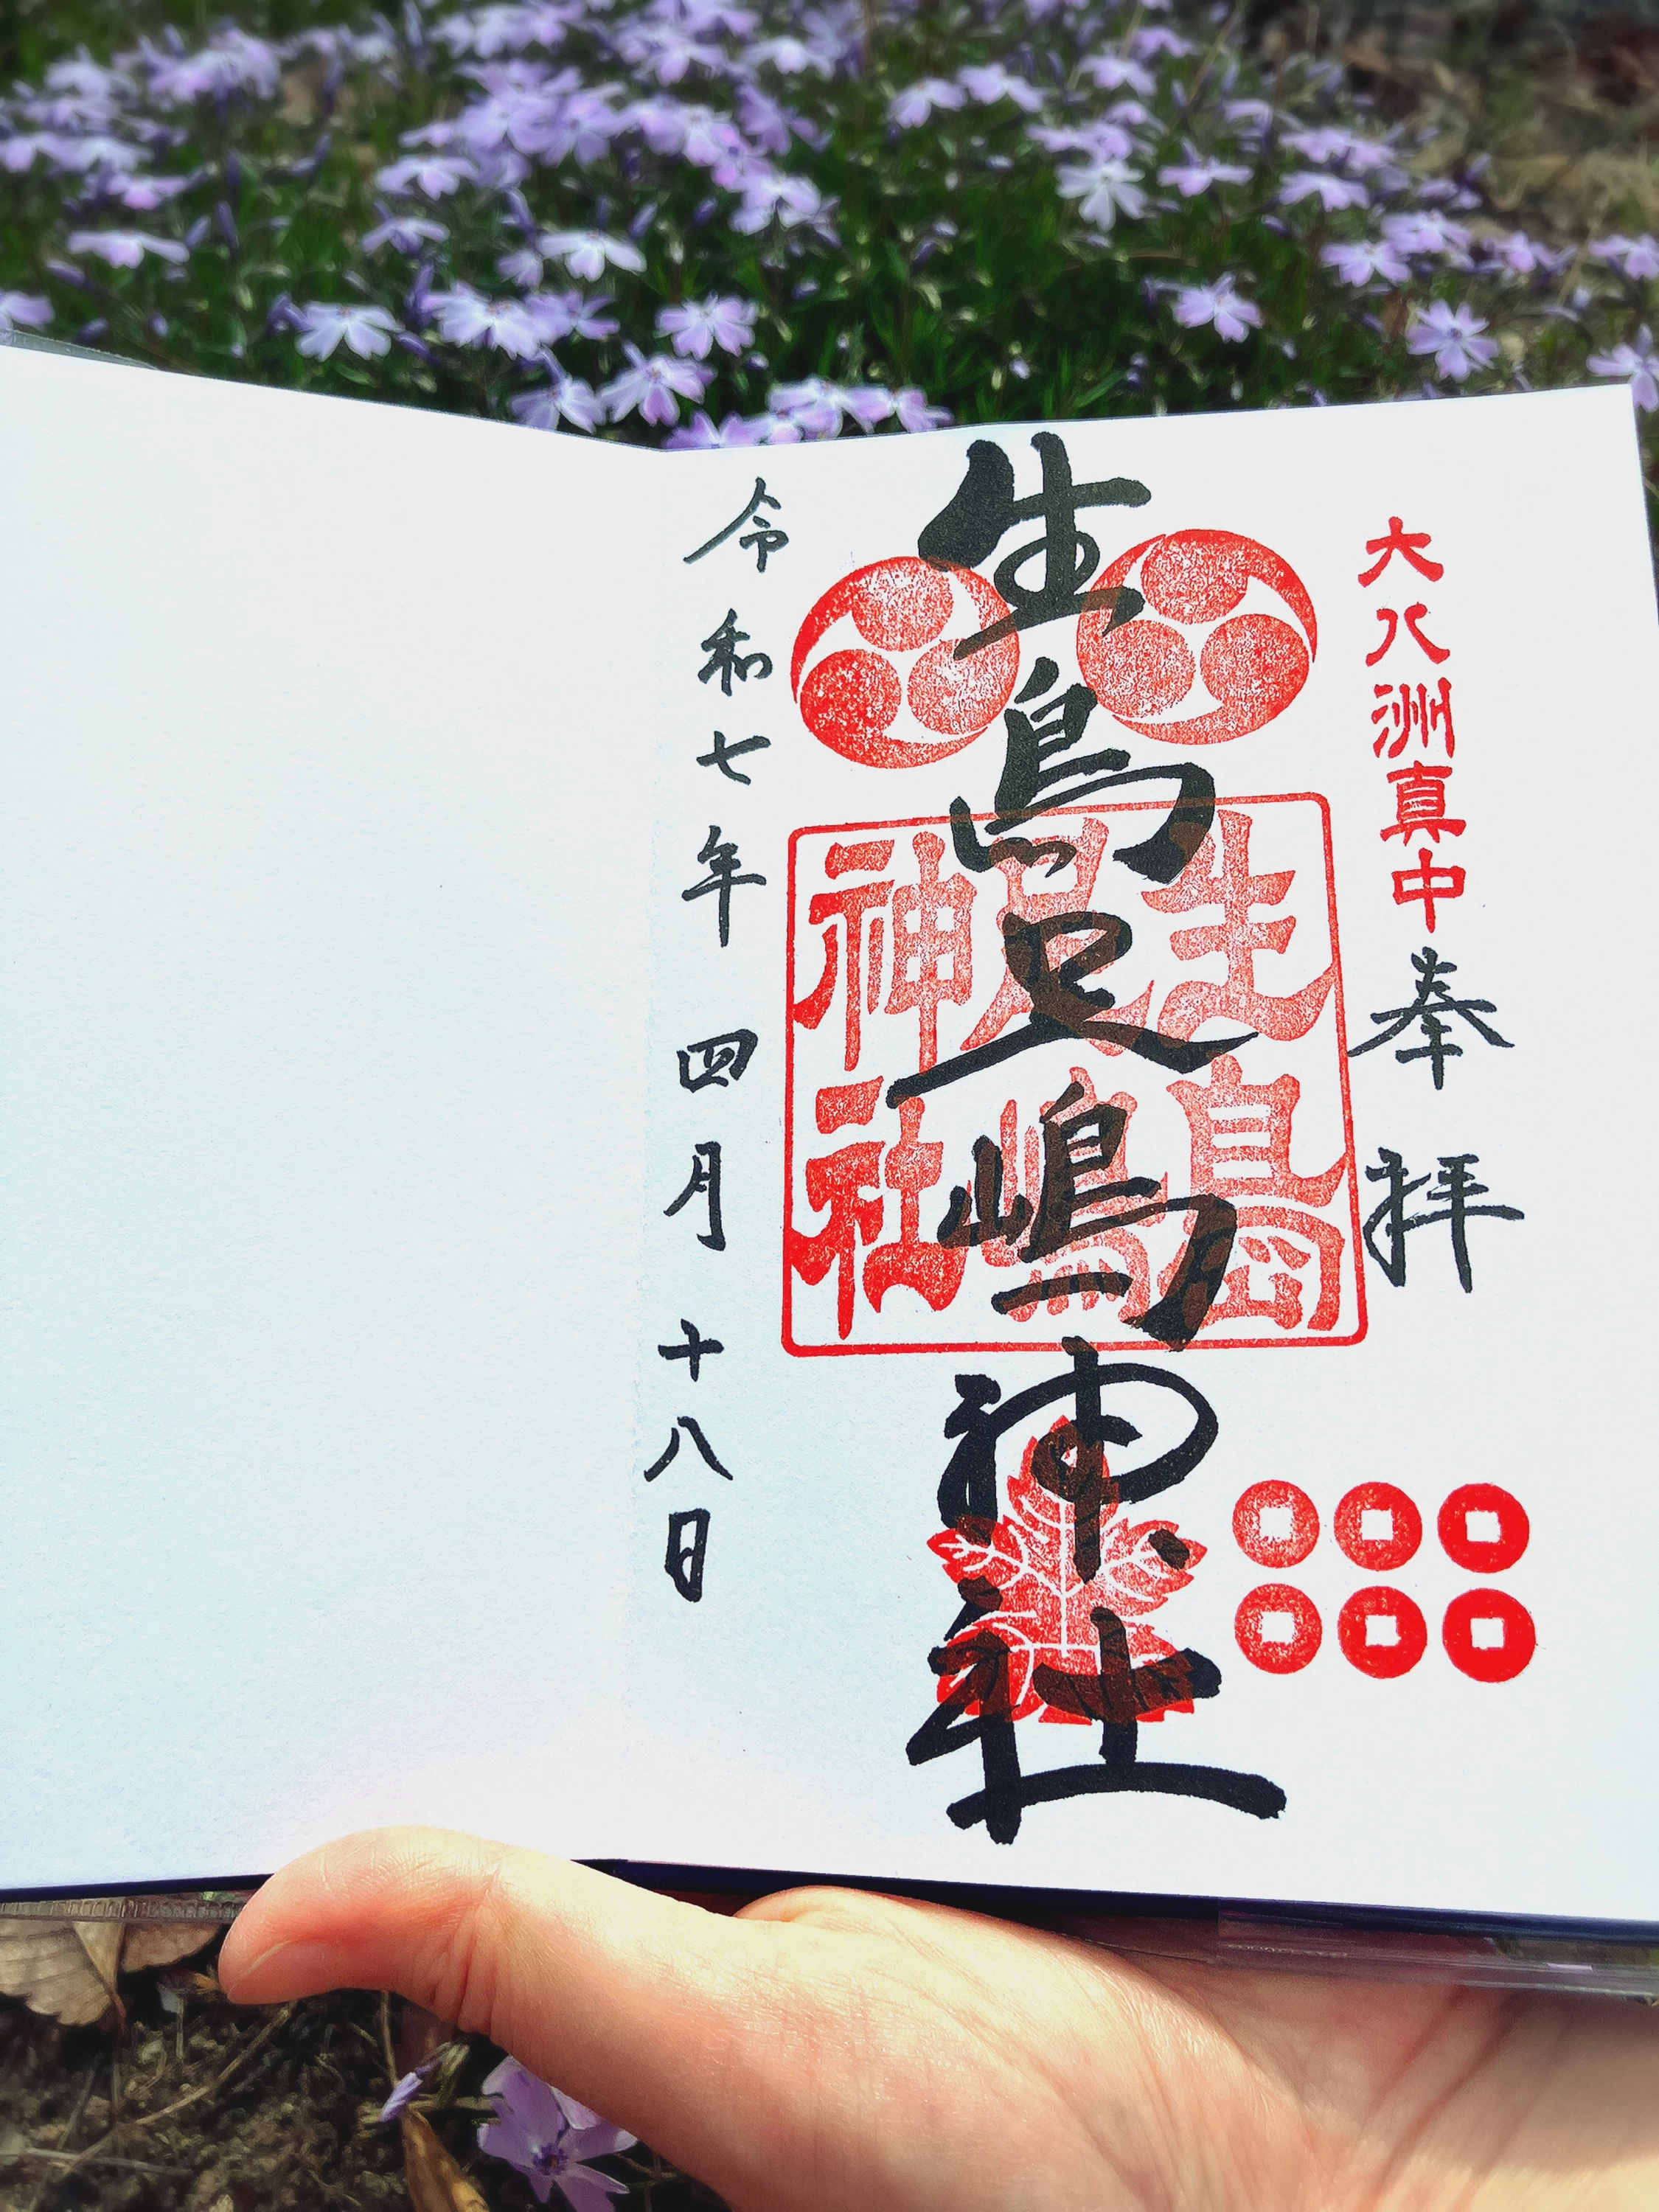 大八洲真中
奉拝
生島足嶋神社
生島
足嶋
神社
令和七年四月十八日